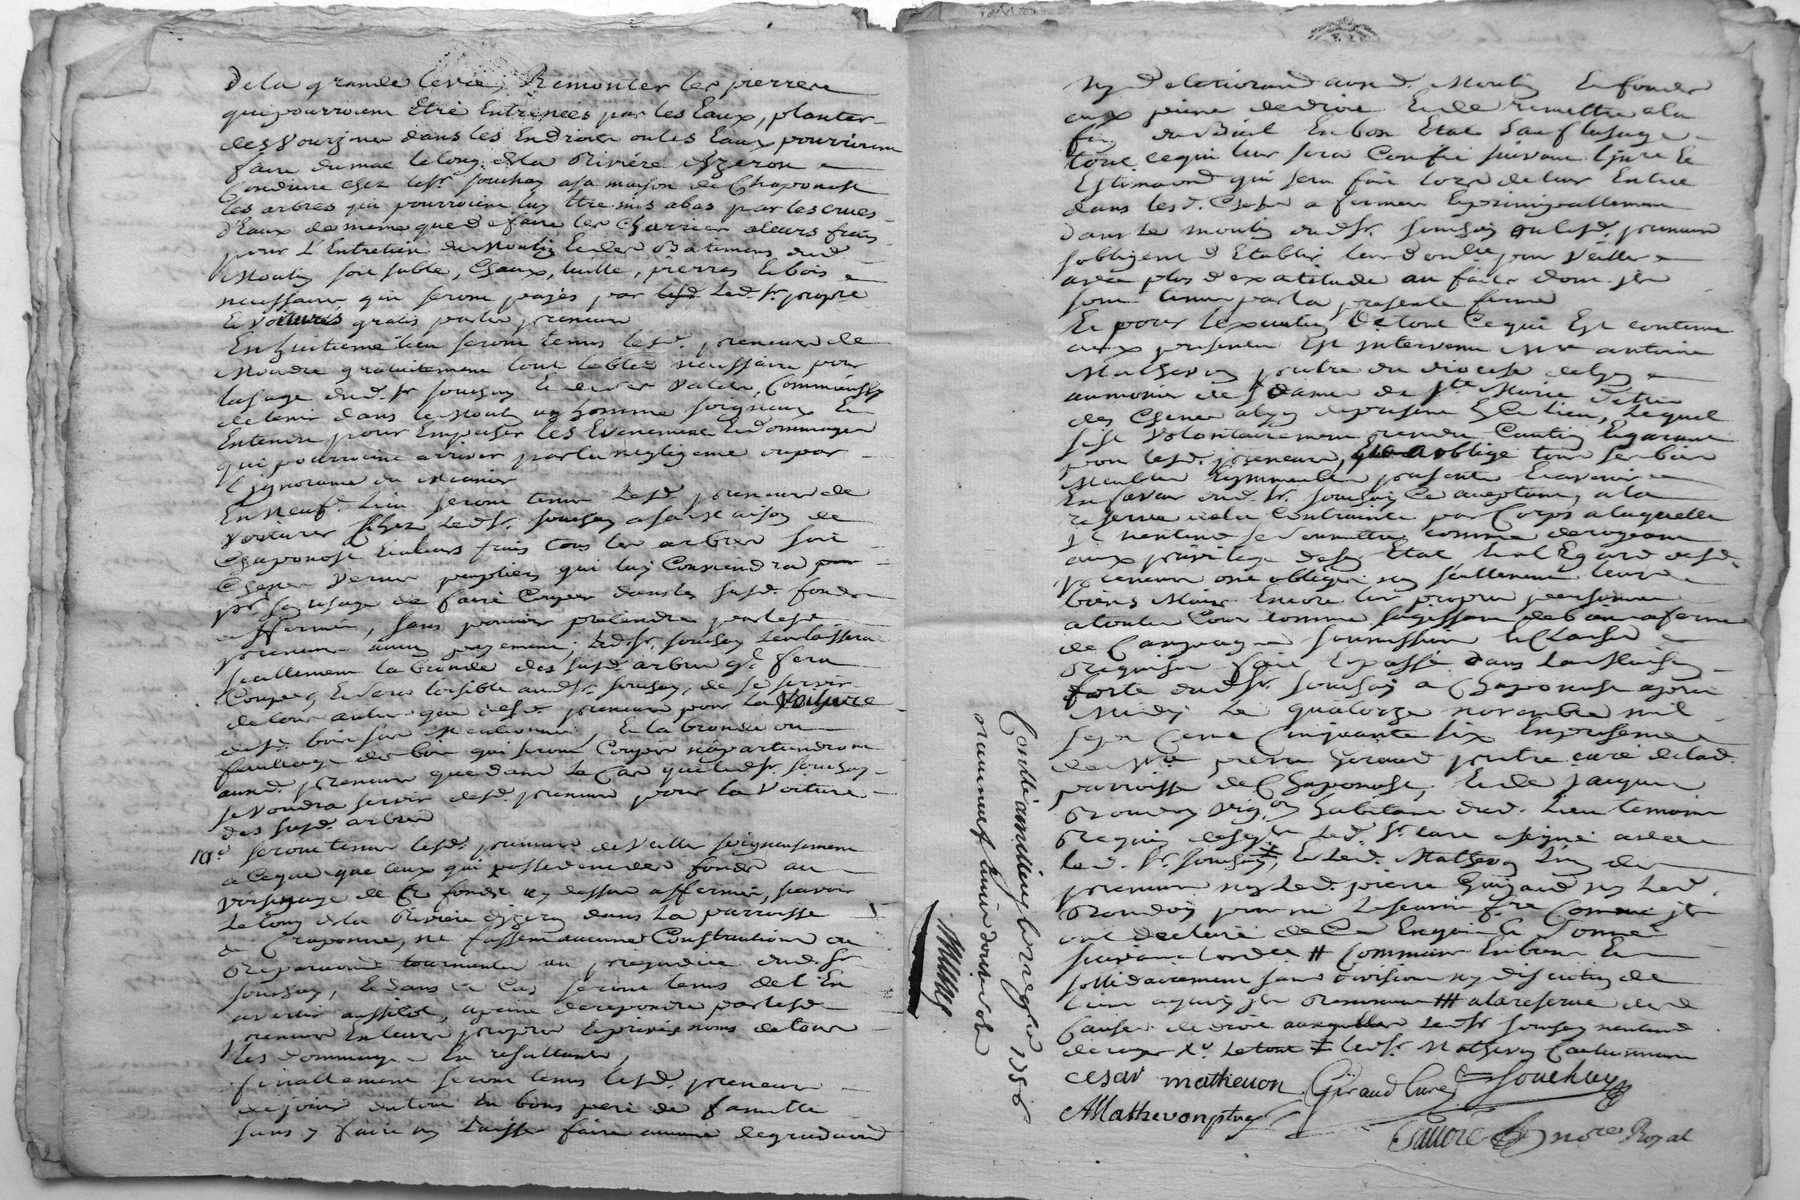 De la grande levée, Remonter les pierres
qui pourroient Etre Entrenées par les Eaux, planter
des Vourgines dans les Endroits ou les Eaux pourroient
faire du mal le long de la Riviere d'Izeron
Conduire chez led. Sr. Souchay a sa maison de Chaponost
les arbres qui pourroient luy Etre mis abas par les crues
d'Eaux de meme que de faire les Charrois a leurs frais
pour L'Entretien du Moulin Et des Batimens dud.
Moulin soit sable, Chaux, tuille, pierres Et bois
necessaires qui seront payés par led. Sr. propre
Et Voiturés gratis par les preneurs
En huitieme lieu seront tenus lesd. preneurs de
Moudre gratuitement tout le bled necessaire pour
lusage dud. Sr. Souchay Et de ses Valets, Comm'aussy
de tenir dans le Moulin un homme soigneux Et
Entendu pour Empecher les Evenements Et Dommages
qui pourroient arriver par la negligence ou par
l'ignorance du meunier
En Neuf. Lieu seront tenus Lesd. preneurs de
Voiturer Chez Led. Sr. Souchay a sa Maison de
Chaponost Et a leurs frais tous les arbres soit
Chene Verne peupliers qui luy Conviendra
pr. son usage de faire Couper dans les susd. fonds
affermés, sans pouvoir pretendre par lesd.
preneurs aucun payement, Led. Sr. Souchay leur laissera
seullement la bronde des susd. arbres q'l fera
Couper, Et sera loisible aud. Sr. Souchay, de se servir
de tout autre que desd. preneurs pour La Voiture
desd. bois sus Mentionnés, Et la bronde ou
feuillage des bois qui seront Coupés n'apartiendront
auxd. preneurs que dans le Cas que led. Sr. Souchay
se Voudra servir desd. preneurs pour la Voiture
des susd. arbres
10e. seront tenus lesd. preneurs de Veiller soigneusement
a Ce que que Ceux qui possedent des fonds au
Voisinage de Ce fonds cy dessus affermés, scavoir
Le long de la Riviere d'Izeron dans La parroisse
de Craponne, ne fassent aucune Constructions ou
Reparations tournantes au prejudice dud. Sr.
Souchay, Et dans Ce Cas seront tenus de l'En
avertir aussitot, a peine de repondre par lesd.
preneurs En leurs propres Et privés noms de tous
les dommages En resultants,
finallement seront tenus lesd. preneurs
de jouir du tout En bons pere de famille
sans y faire ny Laisser faire aucune degradation
Ny Deteriorations auxd. Moulin Et fonds
aux peines de droit Et de remettre a la
fin du Bail En bon Etat Sauf lusage
tout Ce qui leur sera Confié suivant l'jnre. Et
Estimation qui sera fait lors de leur Entrée
dans lesd. Choses a ferme Et principallement
Dans Le Moulin dud. Sr. Souchay ou lesd. preneurs
s'obligent d'Etablir leur pour Veiller
avec plus d'exatitude au faits dont jls
sont tenus par la presente ferme
Et pour l'execution De tout Ce qui Est contenu
aux presentes Est intervenu Mre antoine
Mathevon pretre du diocese de Lyon
aumonier des Dames de Ste. Marie
des Chenes a Lyon de present En Ce lieu, Lequel
s'est Volontairement rendu Caution Et garant
pour lesd. preneurs, oblige tous ses biens
Meubles Et jmmeubles presents Et avenir
En faveur dud. Sr. Souchay Ce aceptant, a la
reserve de la Contrainte par Corps a laquelle
jl n'entend se soumettre, comme derogeant
aux privileges de son Etat Et a l'Egard desd.
preneurs ont obligés non seullement leurs
biens Mais Encore leurs propres personnes
a toutes Cour comme s'agissant de biens a ferme
de Campagne soumission Et Clauses
Requises fait Et passé dans La Maison
forte dud. Sr. Souchay a Chaponost apres
Midy Le quatorze novembre mil
sept Cent Cinquante six En presence
de Mre pierre Giraud pretre curé de lad.
parroisse de Chaponost, Et de Jacques
vign.on habitant dud. lieu temoins
Requis desquels Led. Sr. Curé a signé avec
led. Sr. Souchay, Et led. Mathevon L'un des
preneurs non Led. pierre Guigaud ny Led.
pour ne Le scavoir f.re Comme jls
ont declaré de Ce Enquis Et Sommés
suivant l'ordce # Commun En biens Et
sollidairement sans division ny discution de
l'un a quoy jls Renoncent ### a la reserve desd.
Causes de droit auxquelles Led. Sr. Souchay n'entend
deroger Led. Sr. Mathevon
Cesar mathevon Giraud Curé Souchay
AMathevon ptre
no.re Royal
Conllé a mil Lieu 9bre 1756